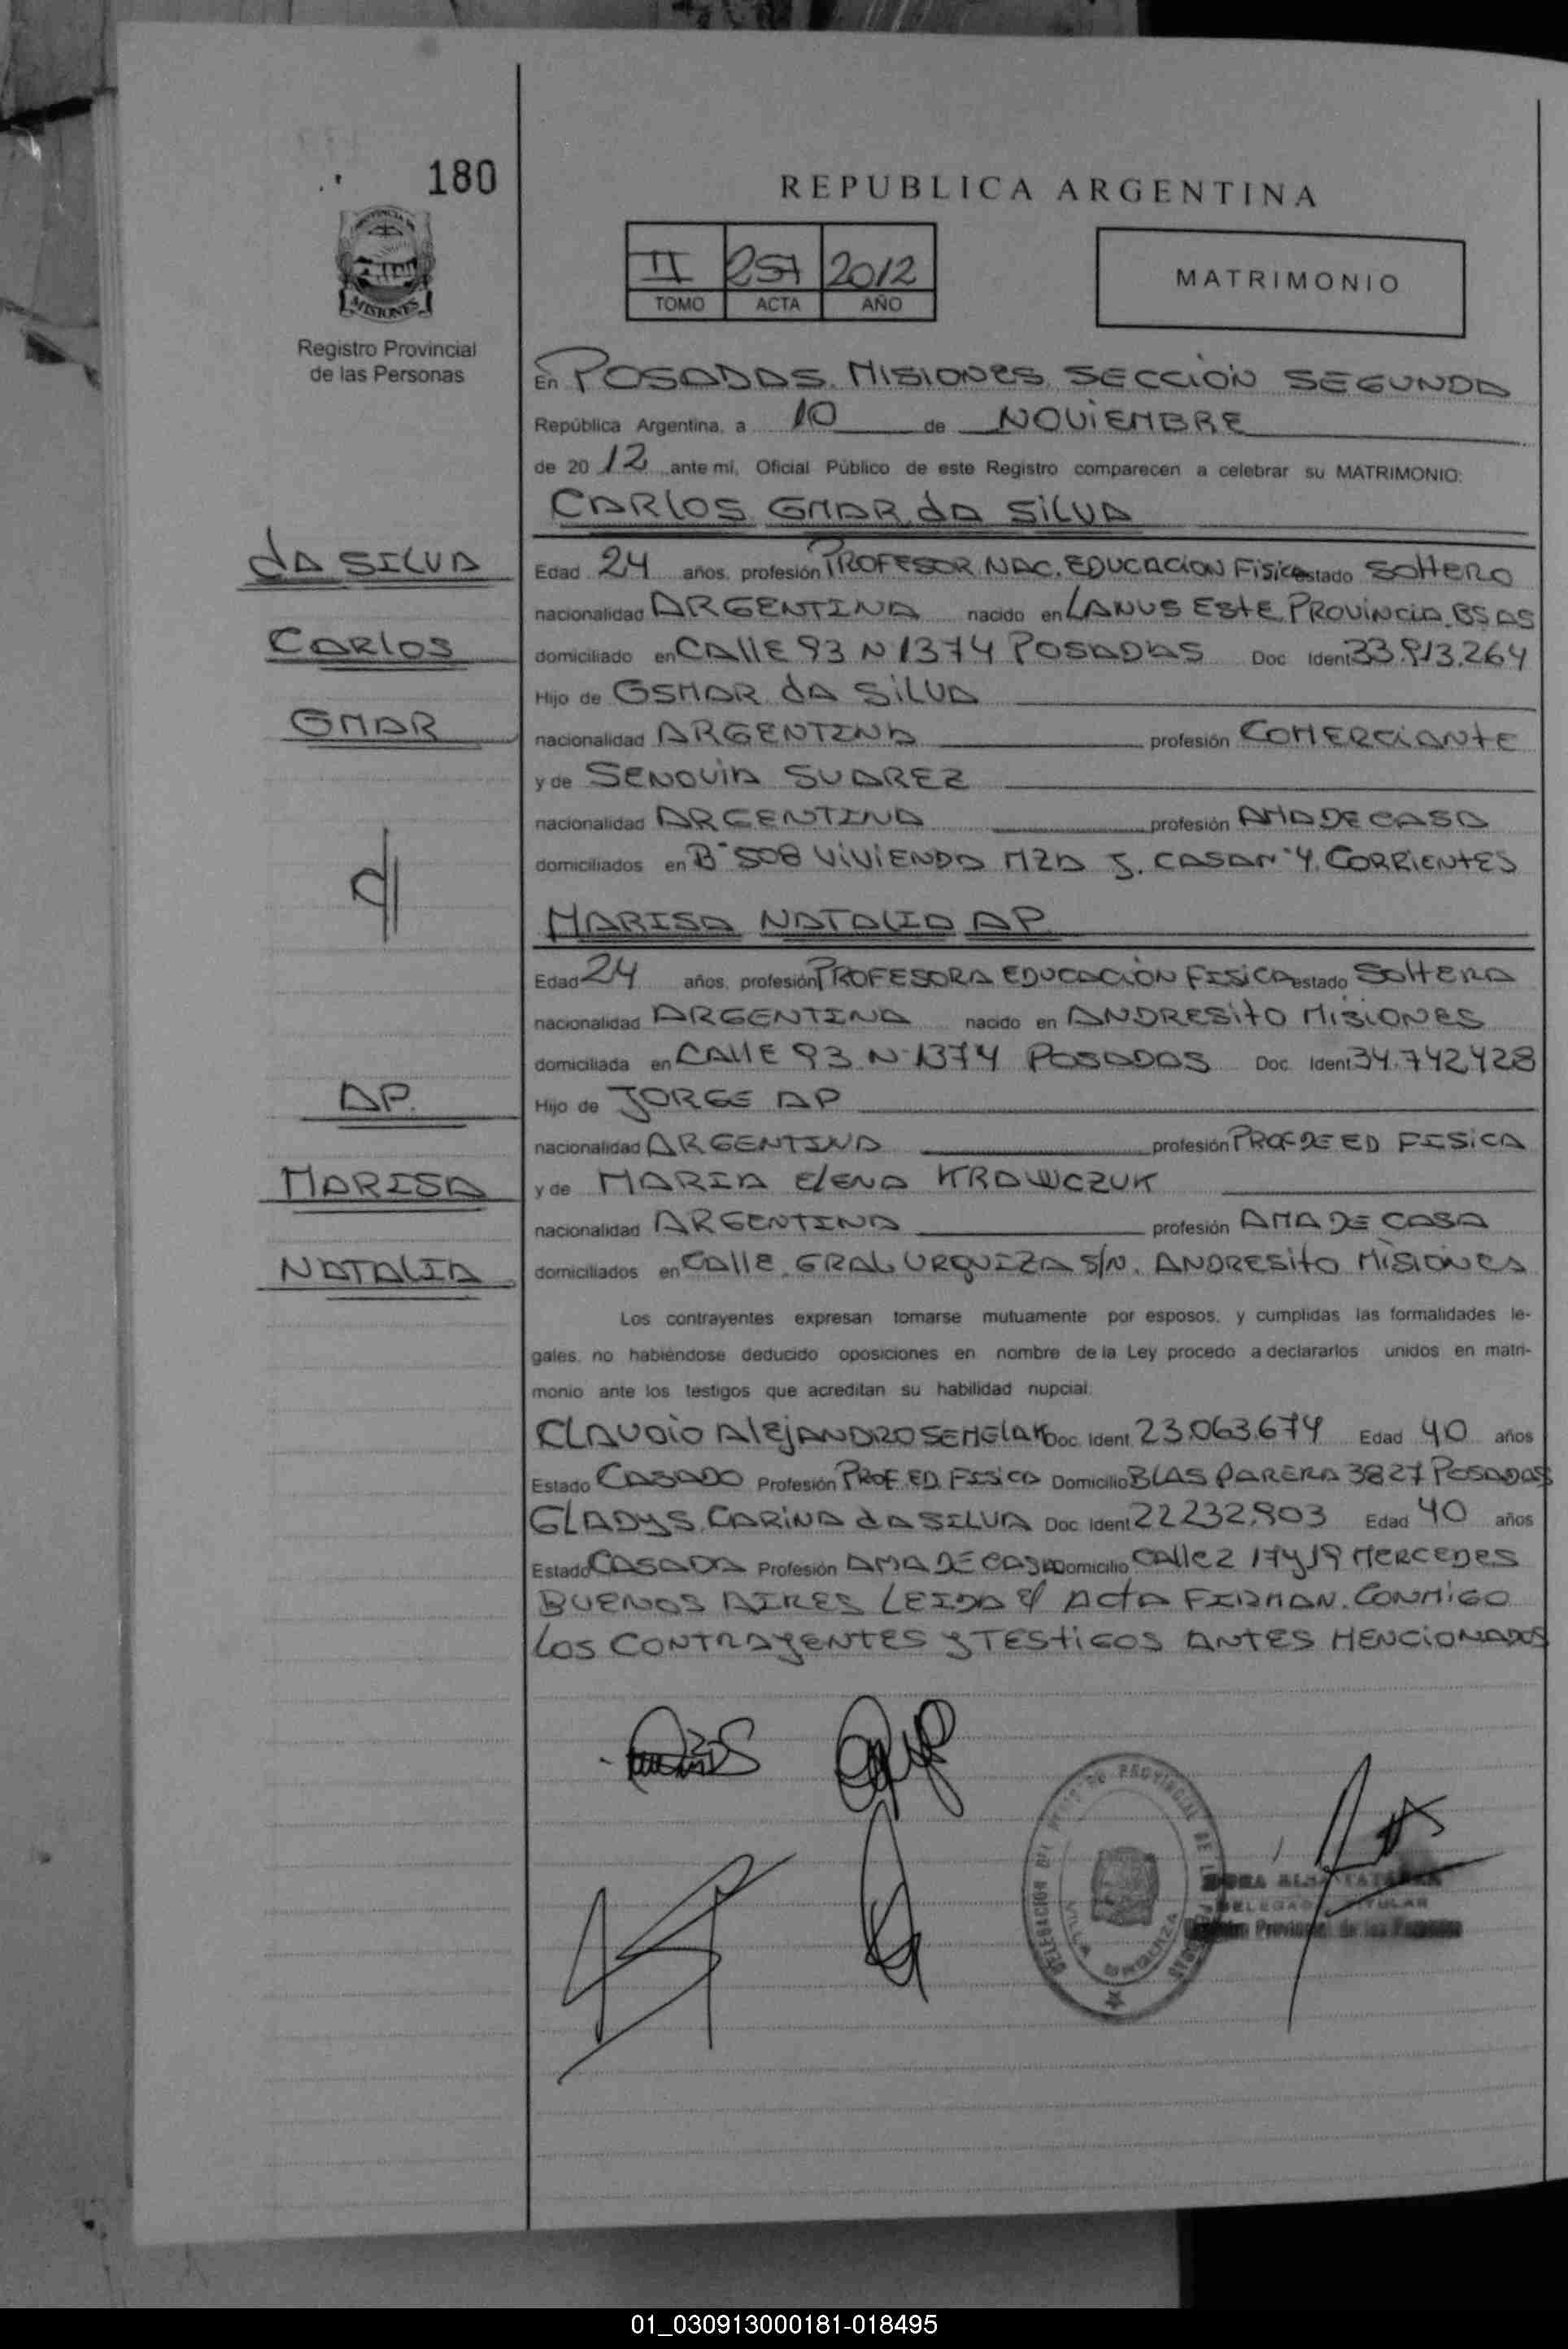 180
REPUBLICA ARGENTINA
II 257 2012
TOMO ACTA AÑO
MATRIMONIO
MISIONES
Registro Provincial
de las Personas
En POSADAS. MISIONES. SECCION SEGUNDA
República Argentina, a 10 de NOVIEMBRE
de 20 12 ante mi, Oficial Público de este Registro comparecen a celebrar su MATRIMONIO:
CARlOS OMAR dA SilVA
dA SILVA
Edad 24 años, profesión PROFESOR NAC. EDUCACION Fisica estado SOltERO
nacionalidad ARGENTINA nacido en LANUS EStE PROVINCIA BS AS
CARlOS
domiciliado en CAllE 93 N 1374 POSADAS Doc Ident 33.913.264
Hijo de OSMAR dA SilVA
OMAR
nacionalidad ARGENTINA profesión COMERCIANtE
y de SENOVIA SUAREZ
nacionalidad ARGENTINA profesión AMA DE CASA
domiciliados en B° 508 ViViENDA MZA J. CASA N° 4. CORRIENtES
MARISA NATALIA AP
Edad 24 años, profesión PROFESORA EDUCACION FISICA estado SOltERA
nacionalidad ARGENTINA nacido en ANDRESitO MISIONES
domiciliada en CAllE 93 N° 1374 POSADAS Doc. Ident 34.742.428
AP.
Hijo de JORGE AP
nacionalidad ARGENTINA profesión PROF DE ED FISICA
MARISA
y de MARIA ElENA KRAWCZUK
nacionalidad ARGENTINA profesión AMA DE CASA
NATALIA
domiciliados en CAllE. GRAL URQUIZA S/N. ANDRESitO MISIONES
Los contrayentes expresan tomarse mutuamente por esposos, y cumplidas las formalidades le-
gales, no habiéndose deducido oposiciones en nombre de la Ley procedo a declararlos unidos en matri-
monio ante los testigos que acreditan su habilidad nupcial.
CLAUDIO AlEjANDRO SEMElAK Doc. Ident. 23.063.674 Edad 40 años
Estado CASADO Profesión PROF. ED. FISICA Domicilio BLAS PARERA 3827 POSADAS
GLADYS. CARINA dA SILVA Doc. Ident 22232.903 Edad 40 años
Estado CASADA Profesión AMA DE CASA Domicilio CAllE 2 17 y 19 MERCEDES
BUENOS AIRES LEIDA El ActA FIRMAN. CONMIGO
LOS CONTRAYENTES y TEStIGOS ANTES MENCIONADOS
DELEGACION DEL PROVINCIAL DE
VILLA
DELEGADA TITULAR
Provincial de las Personas
01_030913000181-018495